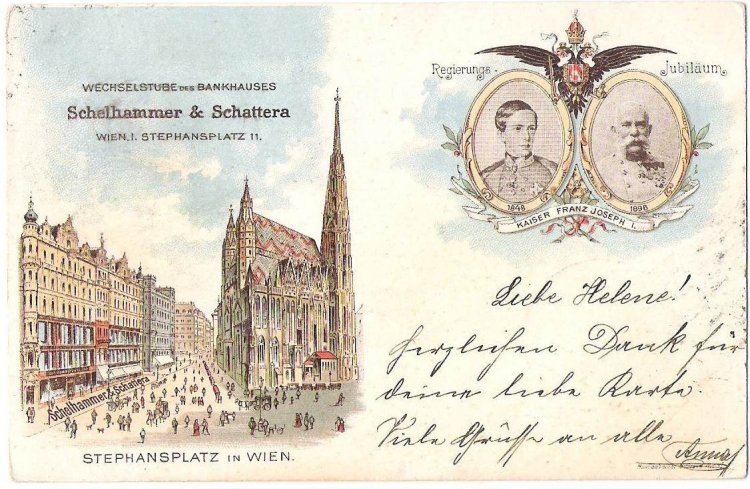 WECHSELSTUBE DES BANKHAUSES
Schelhammer & Schattera
WIEN, I. STEPHANSPLATZ 11.
Regierungs-Jubiläum
1848
1898
KAISER FRANZ JOSEPH I.
Liebe Helene!
herzlichen Dank für
deine liebe Karte.
Viele Grüsse an alle
Schelhammer & Schattera
STEPHANSPLATZ IN WIEN.